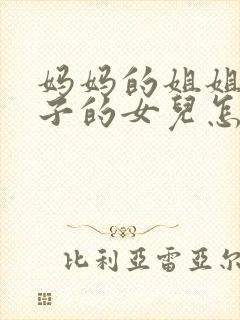 妈妈的姐姐
子的女兒怎
比利亞雷亞尔